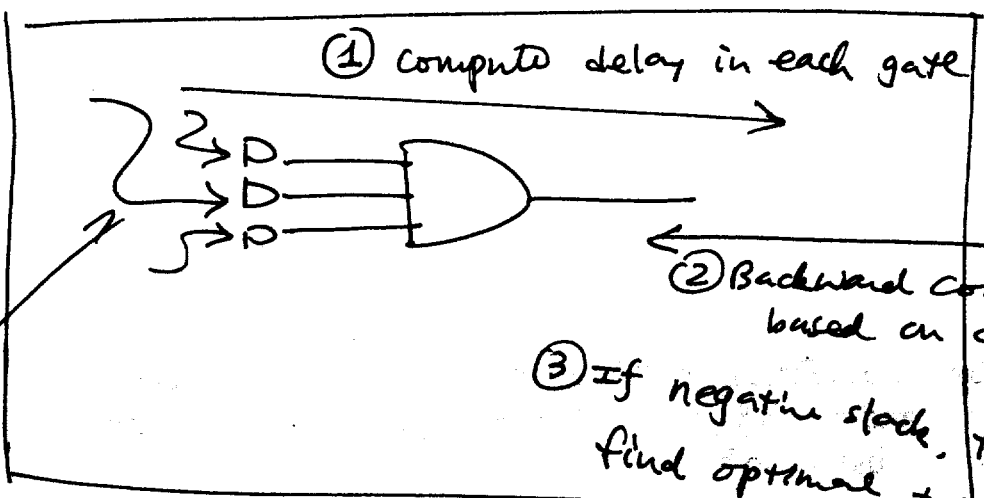 ① compute delay in each gate
② Backward
based on
③ If negative slack.
find optimal